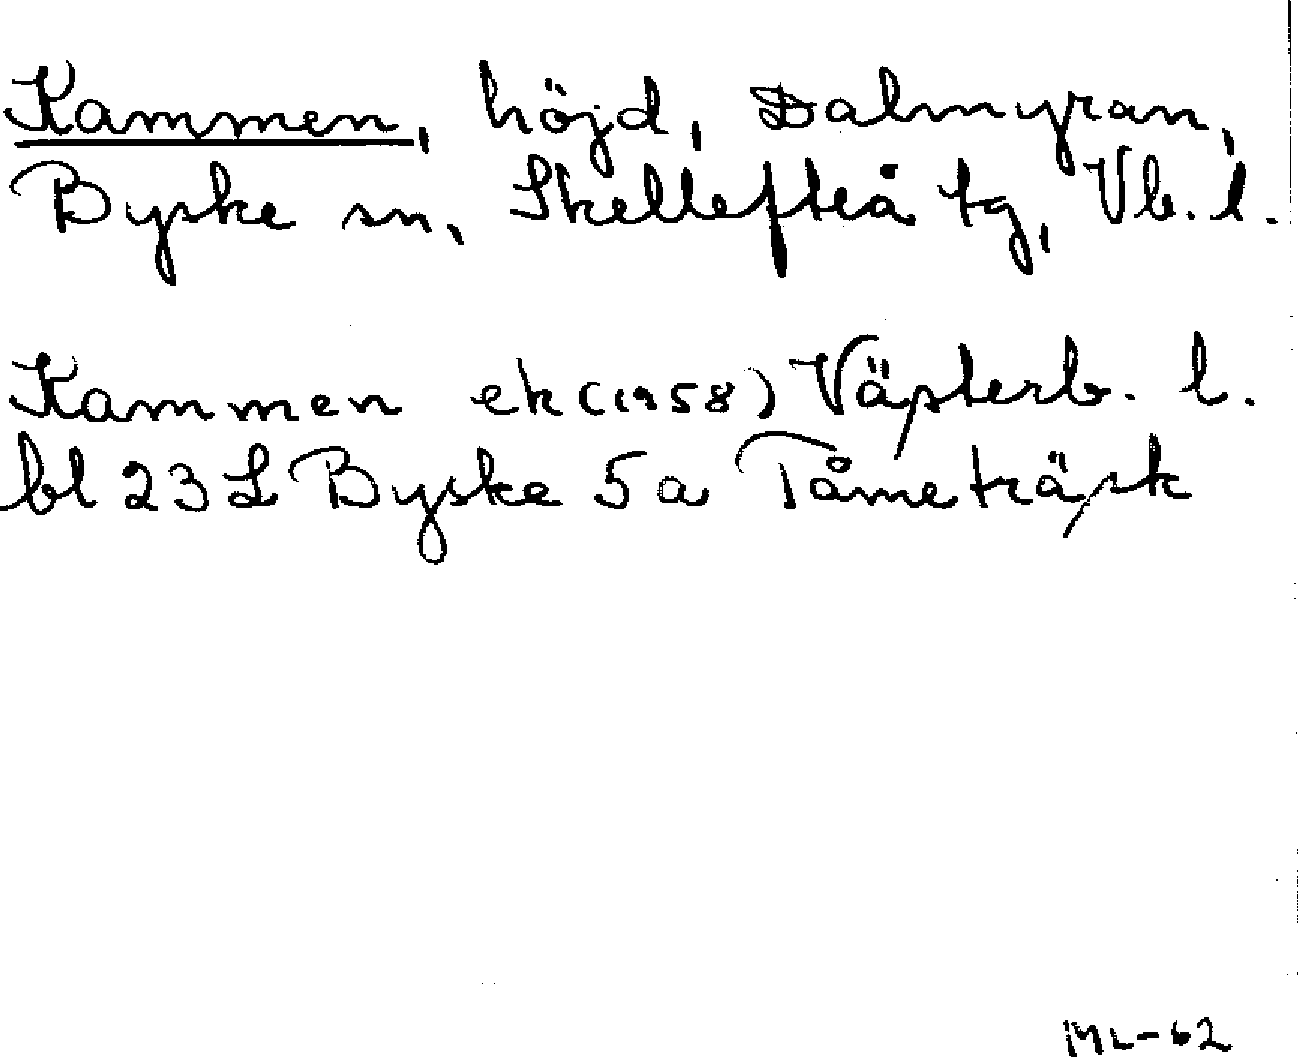 Kammen, höjd, Dalmyran,
Byske sn, Skellefteå tg, Vb. l.
Kammen ek (1958) Västerb. l.
bl 23 L Byske 5 a Tåmeträsk
ML-62